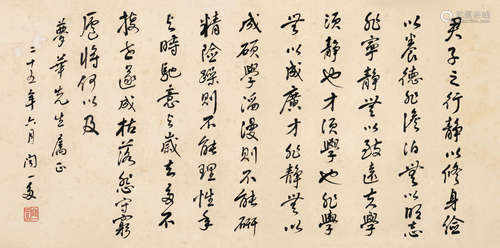 君子之行静以修身儉
以養德非澹泊無以明志
非寧静無以致遠夫學
須静也才須學也非學
無以成廣才非静無以
成碩學滔漫則不能研
精險躁則不能理性年
与時馳意与歲去多不
接世遂成枯落守窮
廬將何以及
夢華先生属正
二十五年六月 闻一多